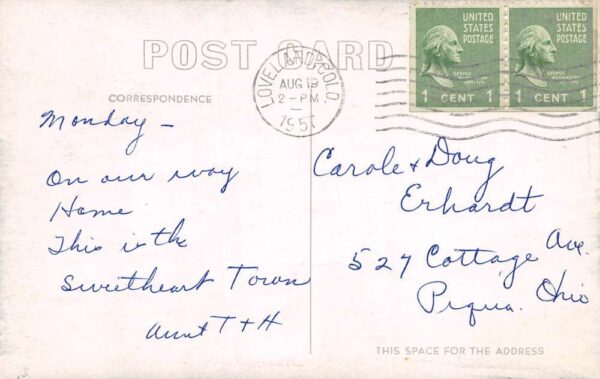 POST CARD
LOVELAND, COLO.
AUG 19
2 - PM
1957
UNITED STATES POSTAGE
GEORGE WASHINGTON
1 CENT 1
UNITED STATES POSTAGE
GEORGE WASHINGTON
1 CENT 1
CORRESPONDENCE
Monday –
On our way
Home
This is the
Sweetheart Town
Aunt T + H
Carole + Doug
Erhardt
527 Cottage Ave.
Piqua, Ohio
THIS SPACE FOR THE ADDRESS